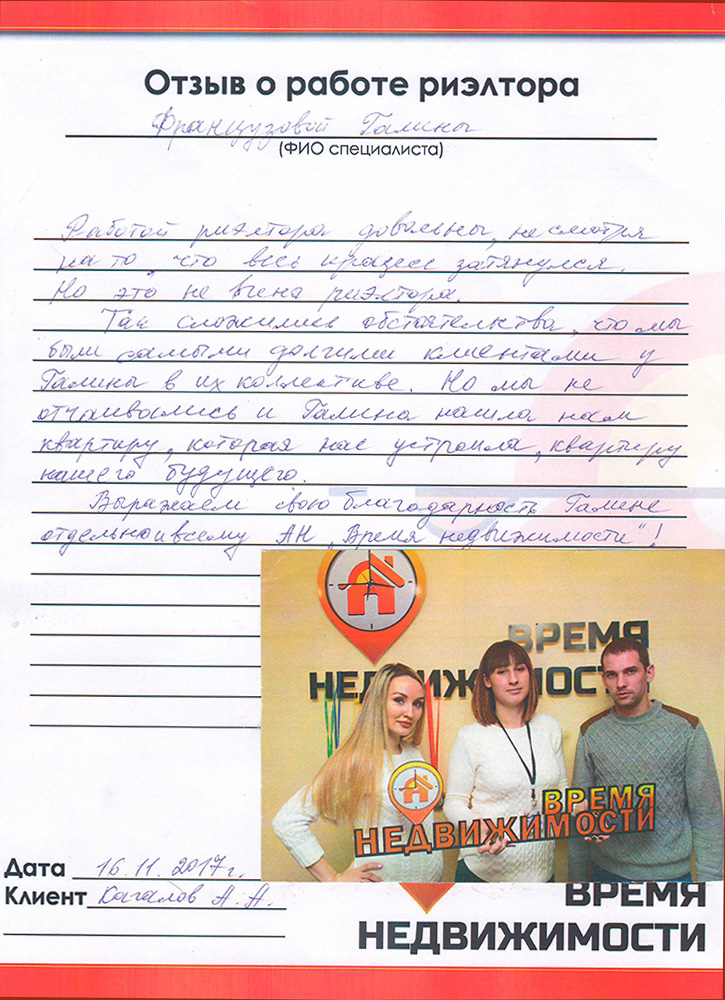 Отзыв о работе риэлтора
Французовой Галины
(ФИО специалиста)
Работой риэлтора довольны, несмотря
на то что весь процесс затянулся.
Но это не вина риэлтора.
Так сложились обстоятельства, что мы
были самыми долгими клиентами у
Галины в их коллективе. Но мы не
отчаивались и Галина нашла нам
квартиру, которая нас устроила, квартиру
нашего будущего.
Выражаем свою благодарность Галине
отдельно и всему АН "Время недвижимости"!
ВРЕМЯ
НЕДВИЖИМОСТИ
ВРЕМЯ
НЕДВИЖИМОСТИ
Дата 16.11.2017г.
Клиент Кагалов А.А.
ВРЕМЯ
НЕДВИЖИМОСТИ